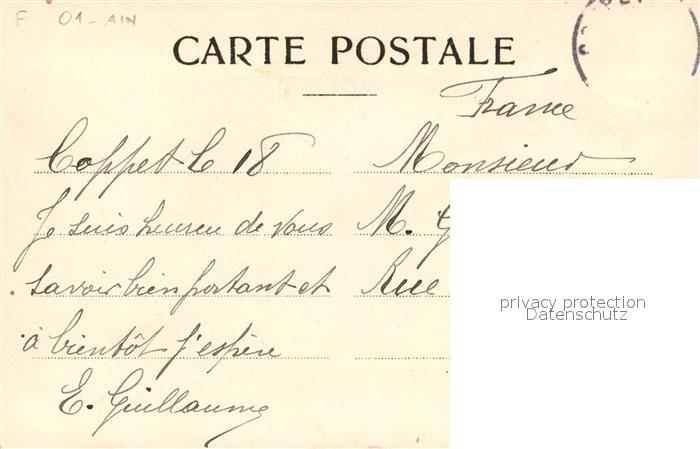 F 01-AIN
CARTE POSTALE
France
Coppet le 18
Je suis heureux de vous
savoir bien portant et
à bientôt j'espère
E. Guillaume
Monsieur
M. G
Rue
privacy protection
Datenschutz